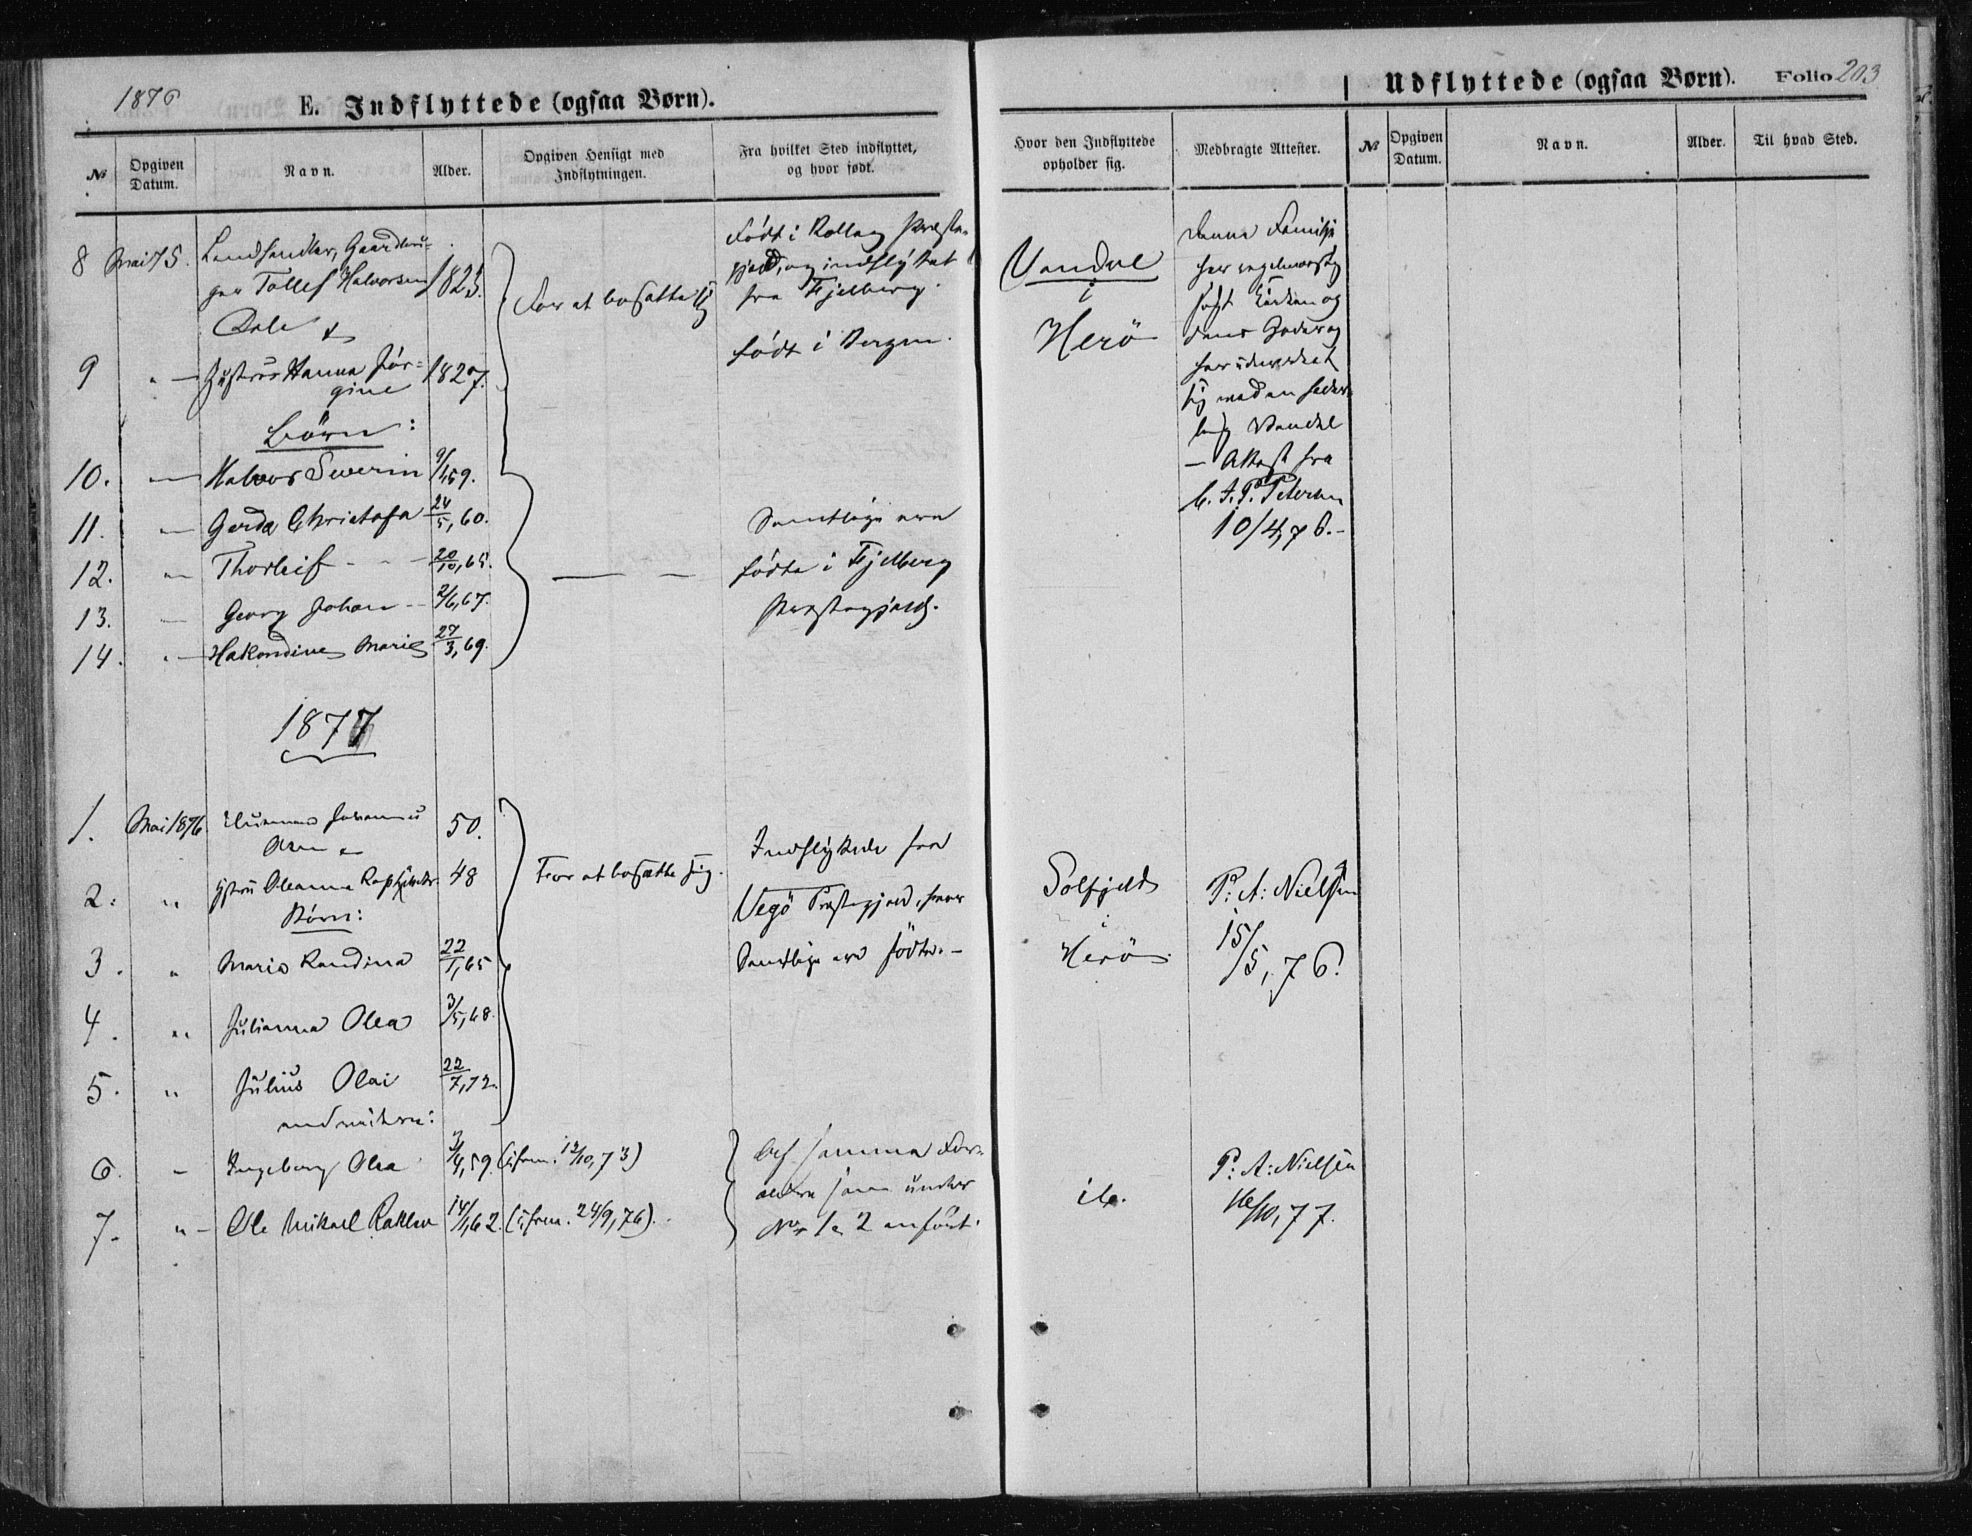 1876
E. Indflyttede (ogsaa Børn).
Udflyttede (ogsaa Børn). Folio 203
№ Opgiven Datum. Navn. Alder. Opgiven Hensigt med Indflytningen. Fra hvilket Sted indflyttet, og hvor født. Hvor den Indflyttede opholder sig. Medbragte Attester. № Opgiven Datum. Navn. Alder. Til hvad Sted.
8 Mai 75. Landhandler, Gaardbru-
ger Tollef Halvorsen 1825.
Dale
For at bosætte sig
Født i Rollag Præste-
gjæld, og indflyttet
fra Fjelberg.
Vandve
i
Herö
Denne Familje
har regelmæssig
søgt Kirken og
dens Goder og
har
sig med en
Vandel
- Attest fra
P. Petersen
10/4, 76.-
9 " - Hustru Hanna Jör-
gine 1827.
født i Bergen.
Börn:
10. - Halvor Severin 9/1, 59.
11. - Gerda Christofa 24/5, 60.
12. " Thorleif - - - 20/10, 65.
13. - Georg Johan - - 2/6, 67.
14. " - Hakondine Marie 27/3, 69.
Samtlige ere
födte i Fjelberg
Præstegjæld.
1877
1. Mai 1876 50.
2. " Hustru Oleanna 48
For at bosætte sig.
Indflyttede fra
Vegö Præstegjæld, hvor
Samtlige ere födte. -
Solfjeld
Herö
P: A: Nielsen
15/5, 76.
Börn:
3. " Marie Randina 22/1, 65
4. " Julianna Olea 3/5, 68.
5. " Julius Olai 22/7, 72.
endvidere:
6. - Ingeborg Olea 3/4, 59. 12/10, 73)
7. " - Ole Mikael 14/1, 62. 24/9, 76).
Af samme For-
ældre som under
No 1 & 2 anført.
P: A: Nielsen
16/10, 77.